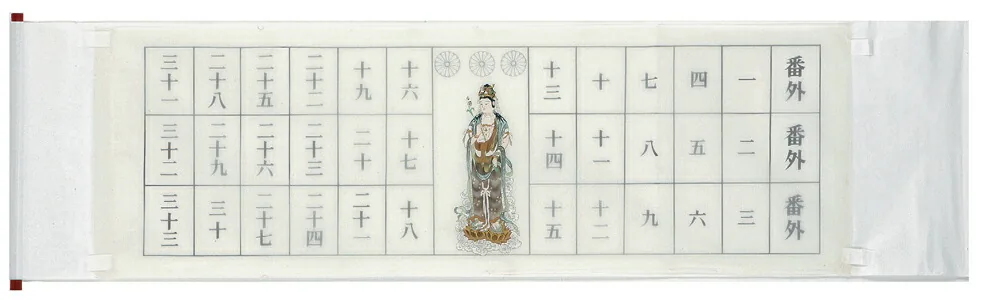 番外
番外
番外
一
二
三
四
五
六
七
八
九
十
十一
十二
十三
十四
十五
十六
十七
十八
十九
二十
二十一
二十二
二十三
二十四
二十五
二十六
二十七
二十八
二十九
三十
三十一
三十二
三十三